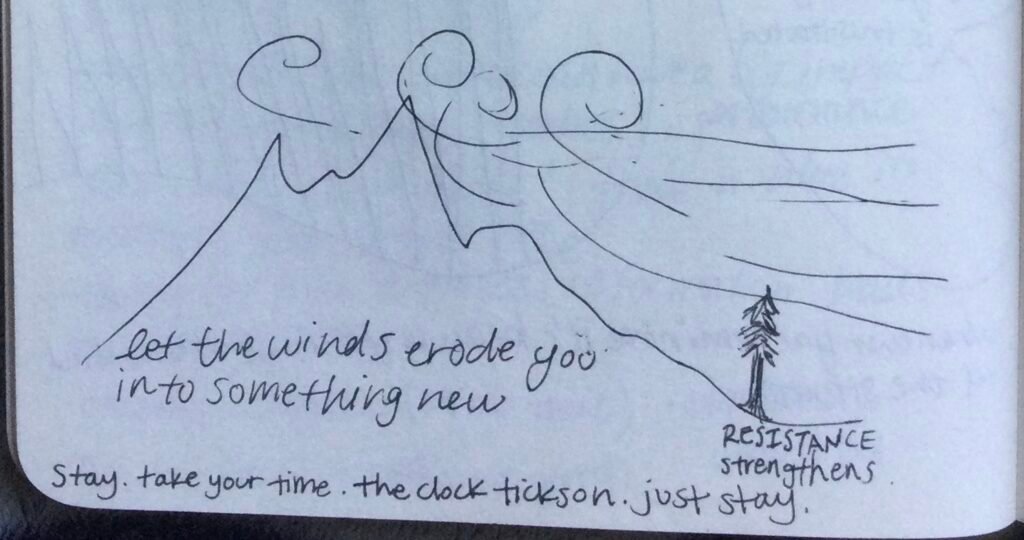 let the winds erode you
into something new
RESISTANCE
strengthens.
Stay. take your time. the clock ticks on. just stay.